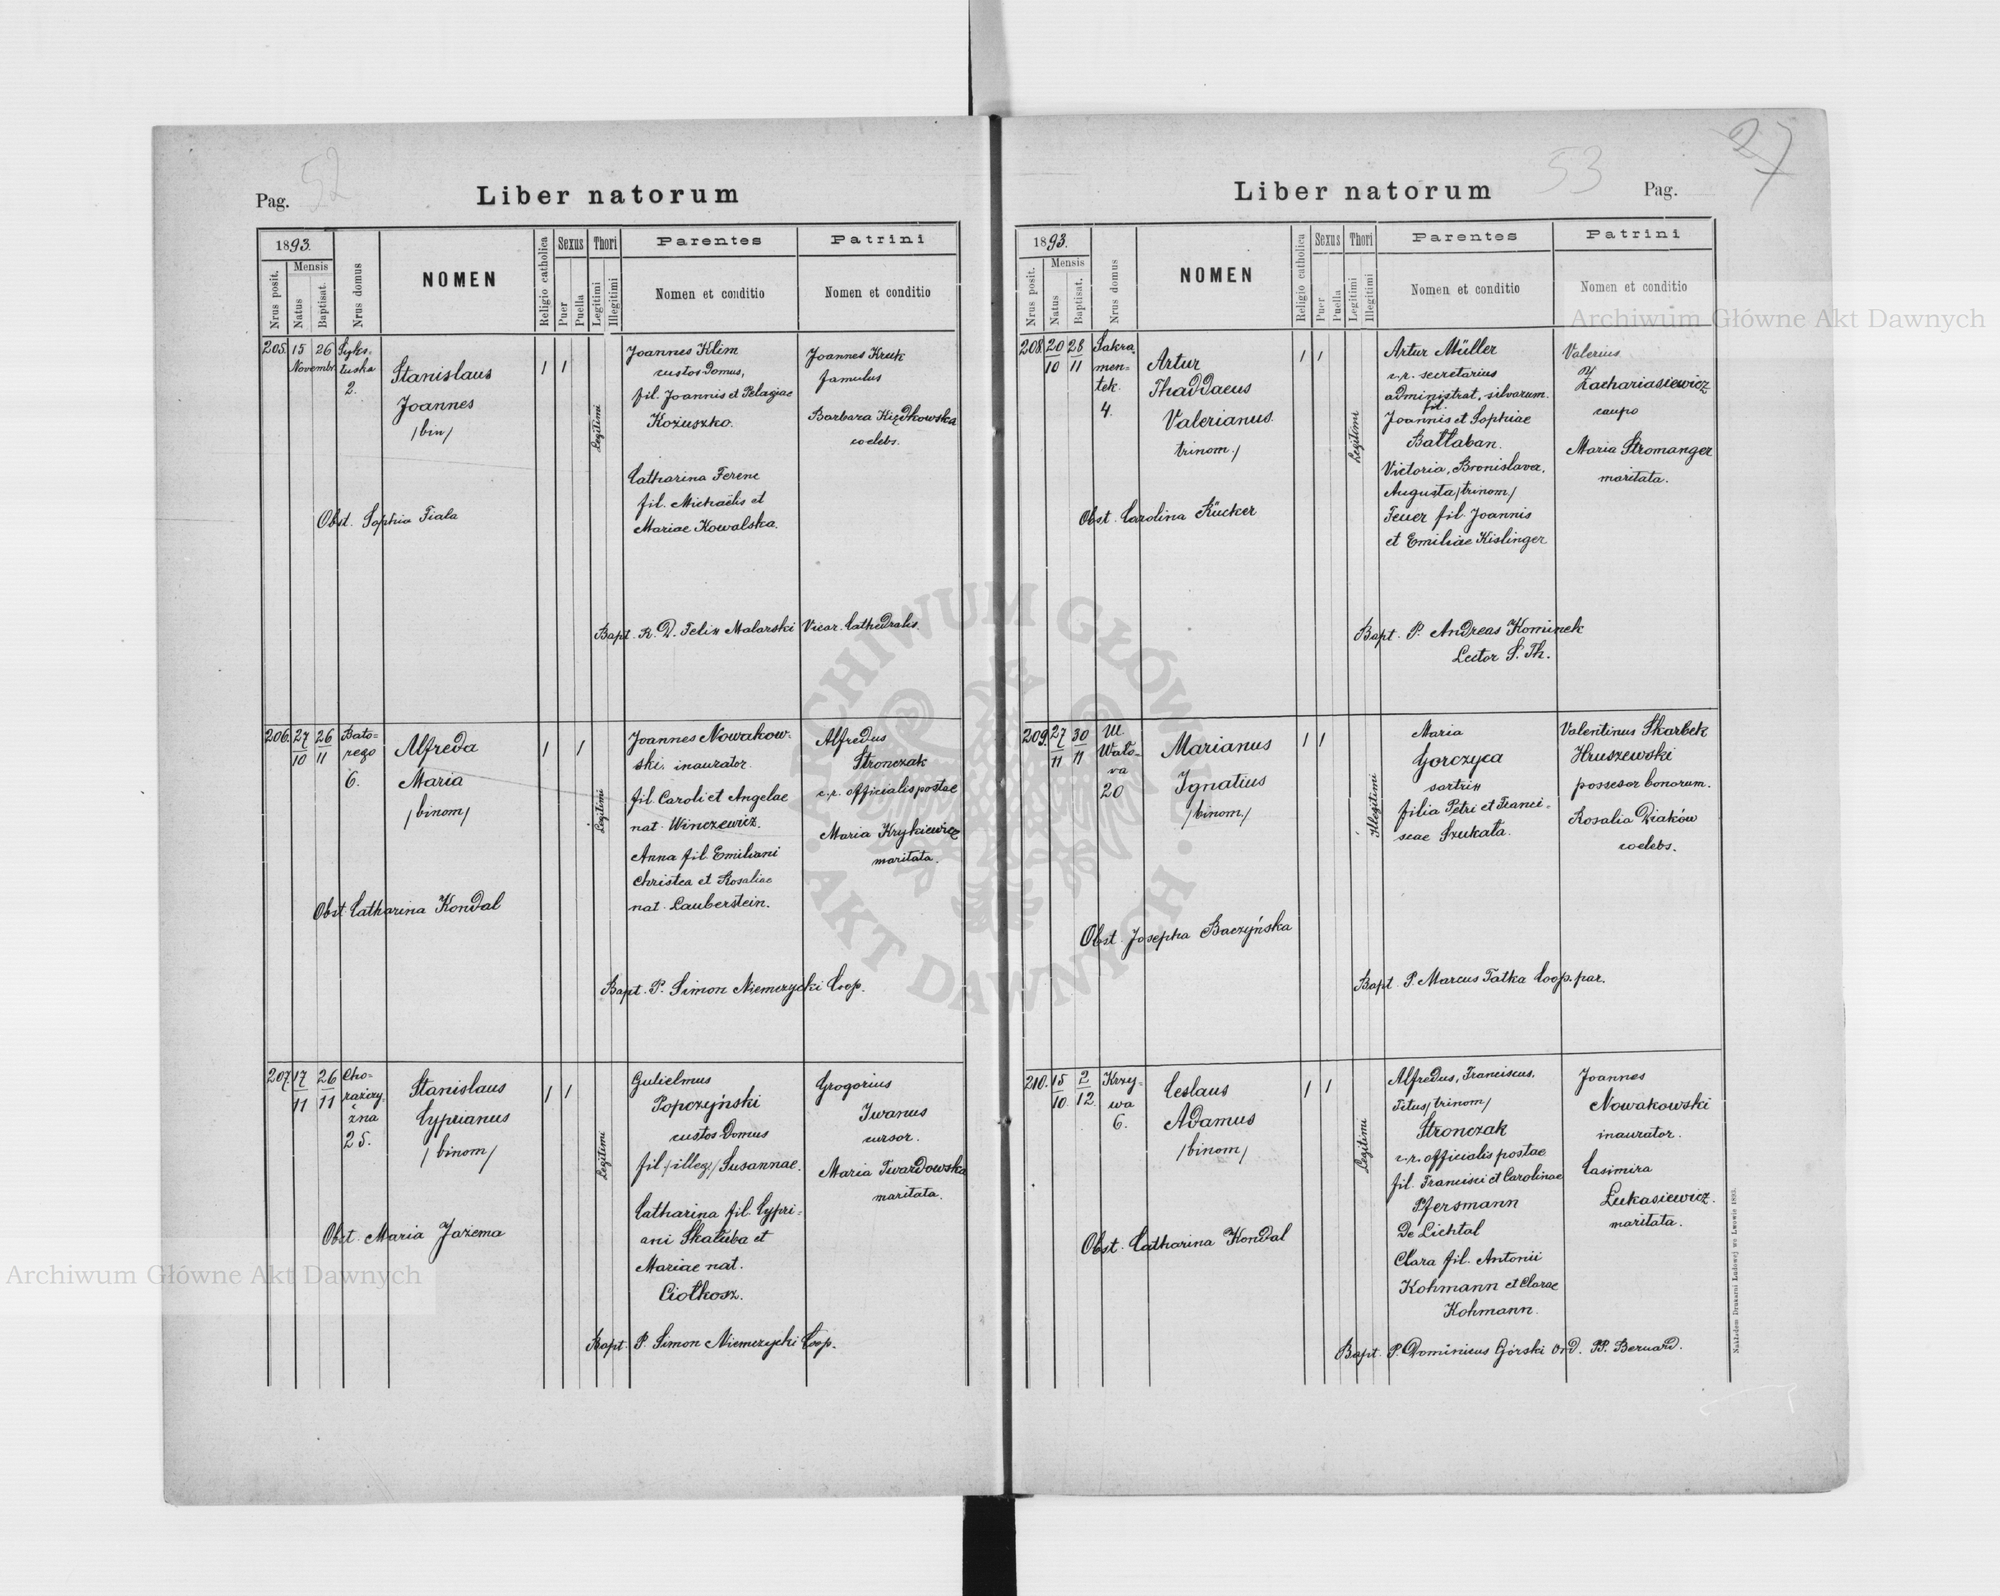 52
Pag.
Liber natorum
1893.
Nrus posit.
Mensis
Natus
Baptisat.
Nrus domus
NOMEN
Religio catholica
Sexus
Puer
Puella
Thori
Legitimi
Illegitimi
Parentes
Nomen et conditio
Patrini
Nomen et conditio
205. 15 26
Novembr.
Syks-
tuska
2.
Stanislaus
Joannes
/bin/
1 1
Legitimi
Joannes Klim
custos domus,
fil. Joannis et Pelagiae
Kożuszko.
Catharina Ferenc
fil. Michaëlis et
Mariae Kowalska.
Joannes Kruk
famulus
Barbara Kiędkowska
coelebs.
Obst. Sophia Fiala
Bapt. R. D. Felix Malarski Vicar. Cathedralis.
206. 27/10 26/11
Bato-
rego
6.
Alfreda
Maria
/binom/
1 1
Legitimi
Joannes Nowakow-
ski, inaurator
fil. Caroli et Angelae
nat. Winczewicz.
Anna fil. Emiliani
Christea et Rosaliae
nat. Lauberstein.
Alfredus
Stronczak
c.r. officialis postae
Maria Krykiewicz
maritata.
Obst. Catharina Kondal
Bapt. P. Simon Niemczycki Coop.
207. 17/11 26/11
Cho-
rążczy-
zna
25.
Stanislaus
Cyprianus
/binom/
1 1
Legitimi
Gulielmus
Popczyński
custos domus
fil. /illeg/ Susannae.
Catharina fil. Cypri-
ani Skałuba et
Mariae nat.
Ciołkosz.
Grogorius
Iwanus
cursor.
Maria Twardowska
maritata.
Obst. Maria Jazema
Bapt. P. Simon Niemczycki Coop.
27
53
Liber natorum
Pag.
1893.
Nrus posit.
Mensis
Natus
Baptisat.
Nrus domus
NOMEN
Religio catholica
Sexus
Puer
Puella
Thori
Legitimi
Illegitimi
Parentes
Nomen et conditio
Patrini
Nomen et conditio
208. 20/10 28/11
Sakra-
men-
tek.
4.
Artur
Thaddaeus
Valerianus.
trinom./
1 1
Legitimi
Artur Müller
c.r. secretarius
administrat. silvarum.
fil.
Joannis et Sophiae
Bałłaban.
Victoria, Bronislava,
Augusta /trinom/
Feuer fil. Joannis
et Emiliae Kislinger
Valerius
Zachariasiewicz
caupo
Maria Stromanger
maritata.
Obst. Carolina Rücker
Bapt. P. Andreas Kominek
Lector S. Th.
209. 27/11 30/11
Ul.
Wało-
va
20
Marianus
Ignatius
/binom./
1 1
Illegitimi
Maria
Gorczyca
sartrix
filia Petri et Franci-
scae Szukała.
Valentinus Skarbek
Hruszewski
possesor bonorum.
Rosalia Diaków
coelebs.
Obst. Josepha Baczyńska
Bapt. P. Marcus Fatka Coop. par.
210. 15/10 2/12.
Krzy-
wa
6.
Ceslaus
Adamus
/binom/
1 1
Legitimi
Alfredus, Franciscus,
Titus /trinom/
Stronczak
c.r. officialis postae
fil. Francisci et Carolinae
Pfersmann
De Lichtal
Clara fil. Antonii
Kohmann et Clarae
Kohmann.
Joannes
Nowakowski
inaurator.
Casimira
Łukasiewicz.
maritata.
Obst. Catharina Kondal
Bapt. P. Dominicus Górski Ord. PP. Bernard.
Nakładem Drukarni Ludowej we Lwowie 1893.
Archiwum Główne Akt Dawnych
Archiwum Główne Akt Dawnych
ARCHIWUM GŁÓWNE AKT DAWNYCH